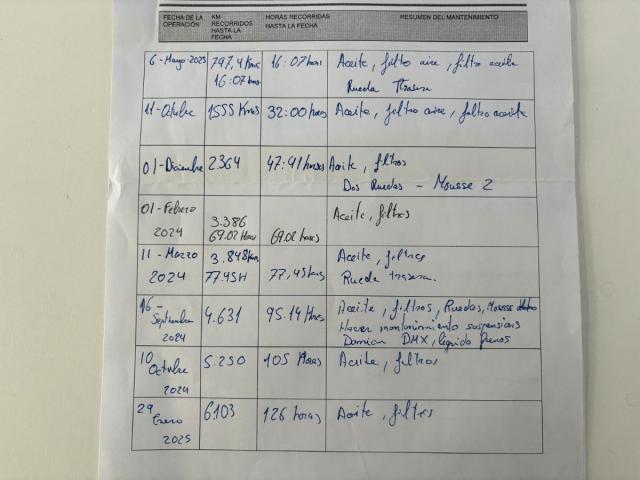 FECHA DE LA OPERACIÓN
KM RECORRIDOS HASTA LA FECHA
HORAS RECORRIDAS HASTA LA FECHA
RESUMEN DEL MANTENIMIENTO
6-Mayo-2023
797,4 Kms
16:07 horas
16:07 horas
Aceite, filtro aire, filtro aceite
Rueda Trasera
11-Octubre
1555 Kms
32:00 horas
Aceite, filtro aire, filtro aceite
01-Diciembre
2.364
47:41 horas
Aceite, filtros
Dos Ruedas - Mousse 2
01-Febrero
2024
3.386
69.02 Horas
69.02 horas
Aceite, filtros
11-Marzo
2024
3.848 km
77.45H
77,45 horas
Aceite, filtros
Rueda trasera.
16-
Septiembre
2024
4.631
95.14 Horas
Aceite, filtros, Ruedas, Mousse
Hacer mantenimiento suspensiones
Damian DMX, liquido frenos
10
Octubre
2024
5.250
105 Horas
Aceite, filtros
29
Enero
2025
6103
126 horas
Aceite, filtros